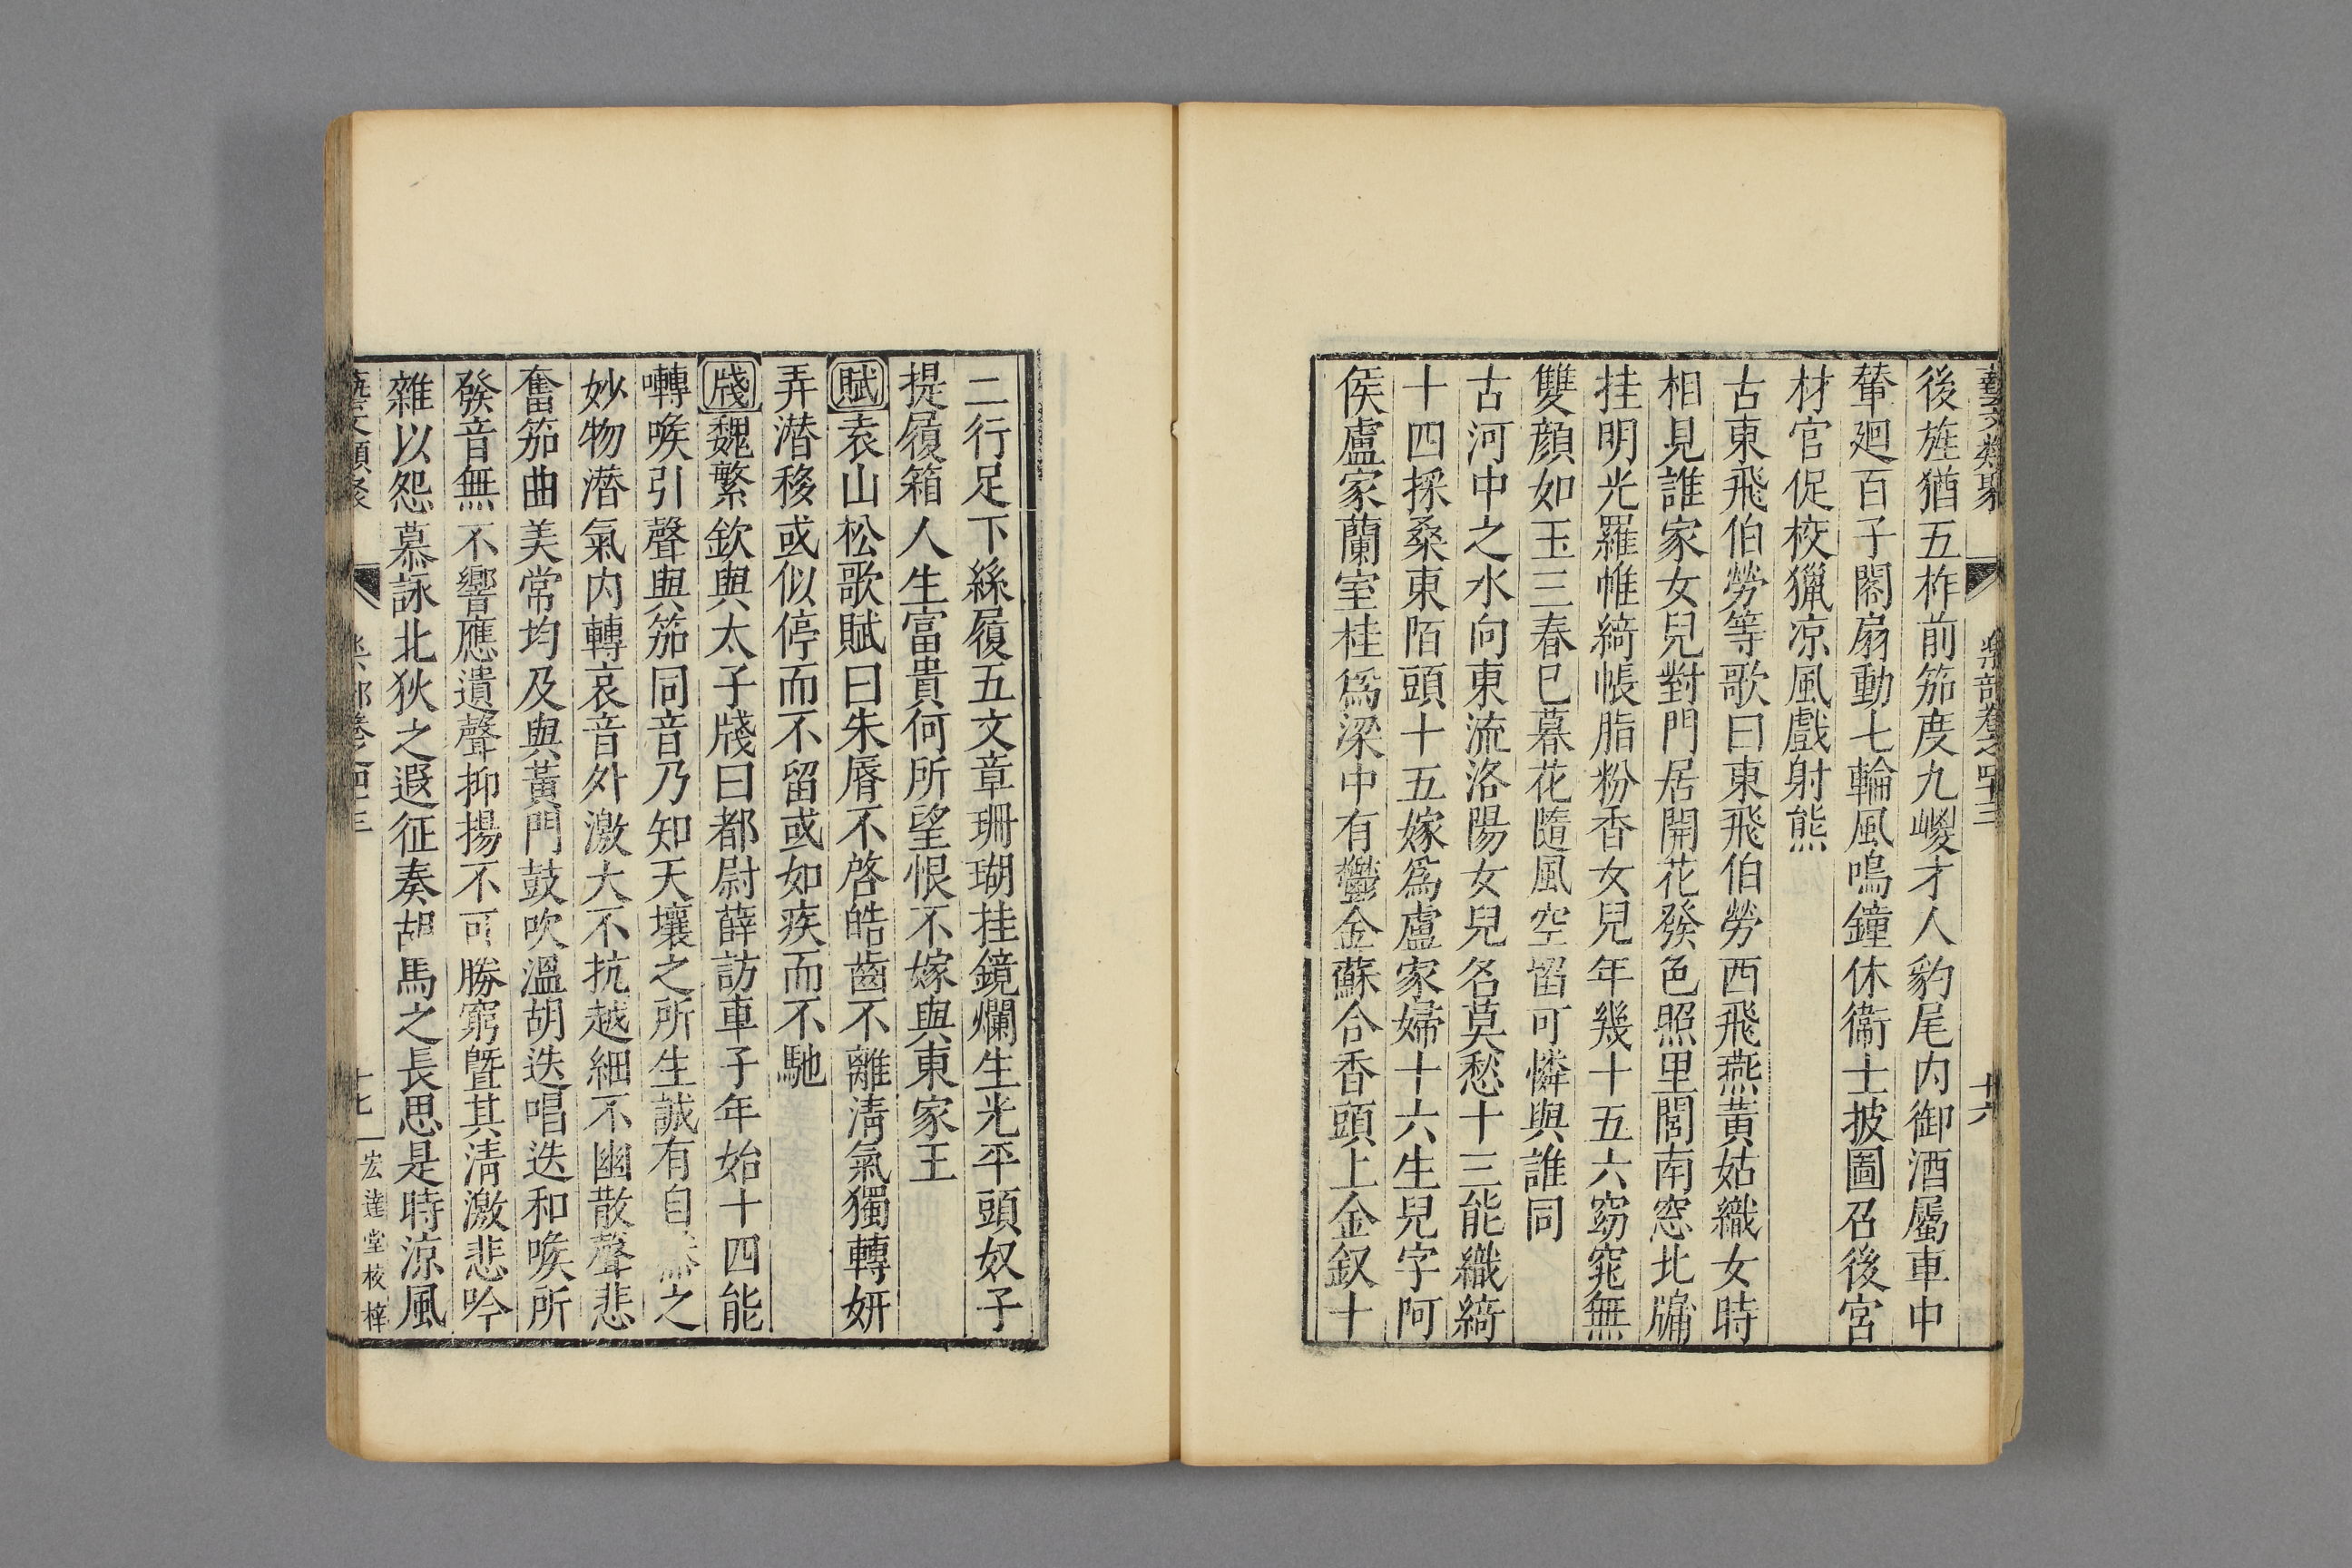 藝文類聚 樂部卷之四十三 十六
後旌猶五柞前笳度九嵕才人豹尾内御酒屬車中
輦廻百子閣扇動七輪風鳴鐘休衞士披圖召後宮
材官促校獵凉風戲射熊
古東飛伯勞等歌曰東飛伯勞西飛燕黃姑織女時
相見誰家女兒對門居開花發色照里閭南窓北牖
挂明光羅帷綺帳脂粉香女兒年幾十五六窈窕無
雙顔如玉三春巳暮花隨風空留可憐與誰同
古河中之水向東流洛陽女兒名莫愁十三能織綺
十四採桑東陌頭十五嫁爲盧家婦十六生兒字阿
侯盧家蘭室桂爲梁中有鬱金蘇合香頭上金釵十
二行足下絲履五文章珊瑚挂鏡爛生光平頭奴子
提履箱人生富貴何所望恨不嫁與東家王
賦袁山松歌賦曰朱脣不啓皓齒不離淸氣獨轉妍
弄潜移或似停而不留或如疾而不馳
牋魏繁欽與太子牋曰都尉薛訪車子年始十四能
囀喉引聲與笳同音乃知天壤之所生誠有自然之
妙物潜氣内轉哀音外激大不抗越細不幽散聲悲
奮笳曲美常均及與黃門鼓吹溫胡迭唱迭和喉所
發音無不響應遺聲抑揚不可勝窮曁其淸激悲吟
雜以怨慕詠北狄之遐征奏胡馬之長思是時涼風
藝文類聚 樂部卷之四十三 十七 宏達堂校梓